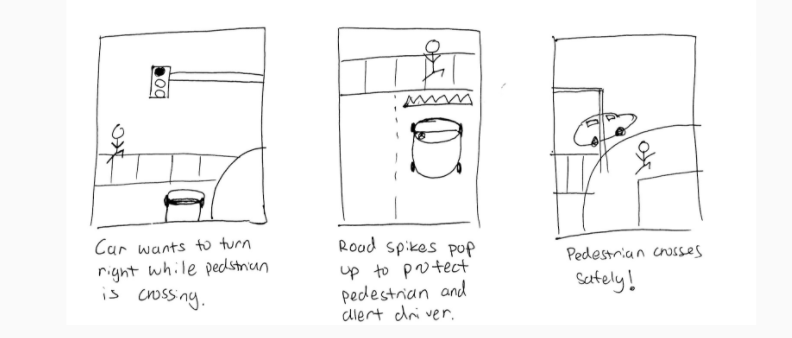 Car wants to turn
right while pedstrian
is crossing.
Road spikes pop
up to protect
pedestrian and
alert driver.
Pedestrian crosses
safely!